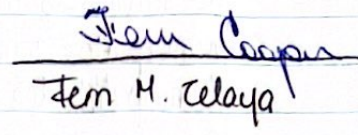 Fem Cooper
Fem M. Zelaya